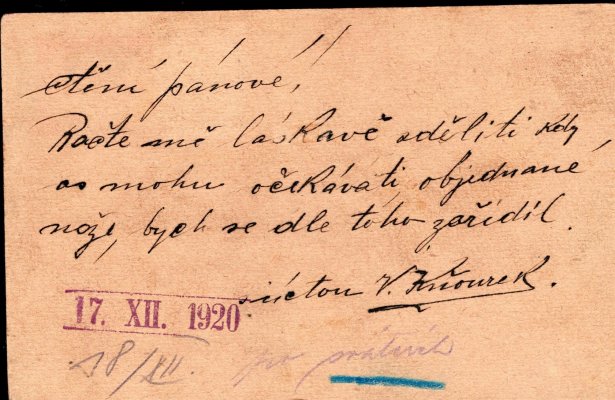 ctění pánové!
Račte mě láskavě sděliti kdy
as mohu očekávati objednané
nože, bych se dle toho zařídil.
s úctou V. Kňourek.
17. XII. 1920
18/XII. po svátcích